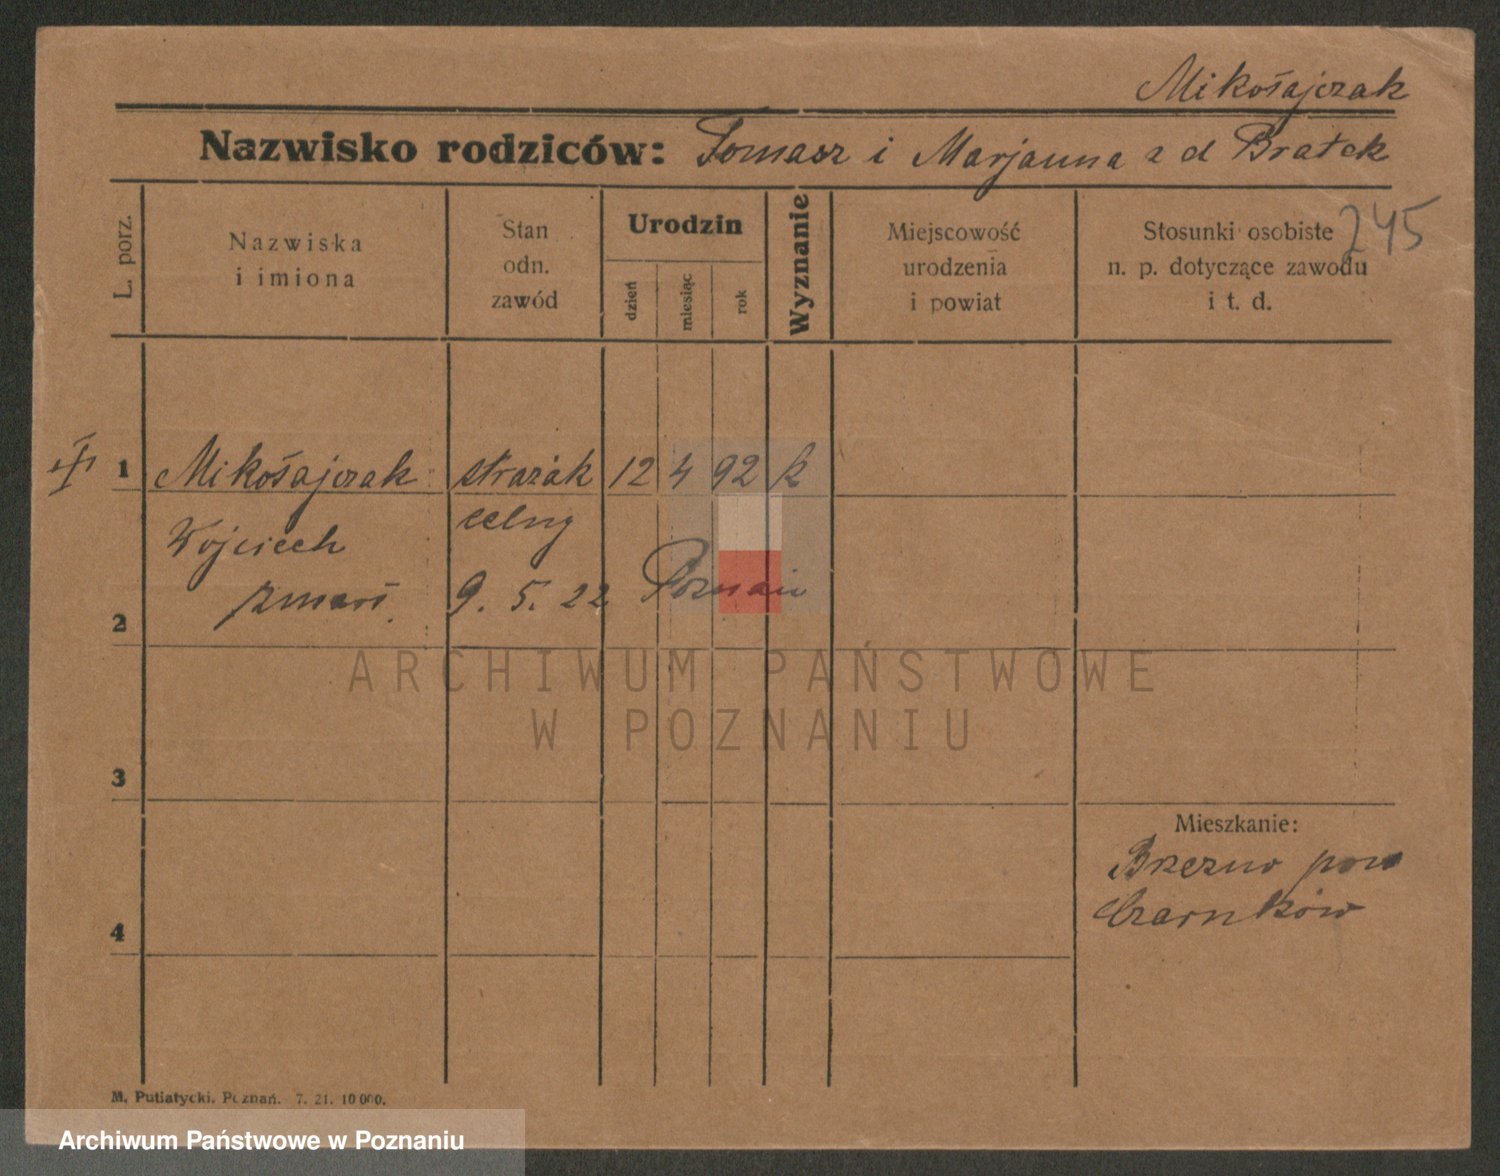 Mikołajczak
Nazwisko rodziców: Tomasz i Marjanna z d Bratek
245
L. porz.
Nazwiska
i imiona
Stan
odn.
zawód
Urodzin
dzień
miesiąc
rok
Wyznanie
Miejscowość
urodzenia
i powiat
Stosunki osobiste
n. p. dotyczące zawodu
i t. d.
1 Mikołajczak strażak 12 4 92 k
Wojciech celny
zmarł 9. 5. 22 Poznań
2
ARCHIWUM PAŃSTWOWE
W POZNANIU
3
Mieszkanie:
Brzezno pow
Czarnków
4
M. Putiatycki. Poznań. 7. 21. 10 000.
Archiwum Państwowe w Poznaniu